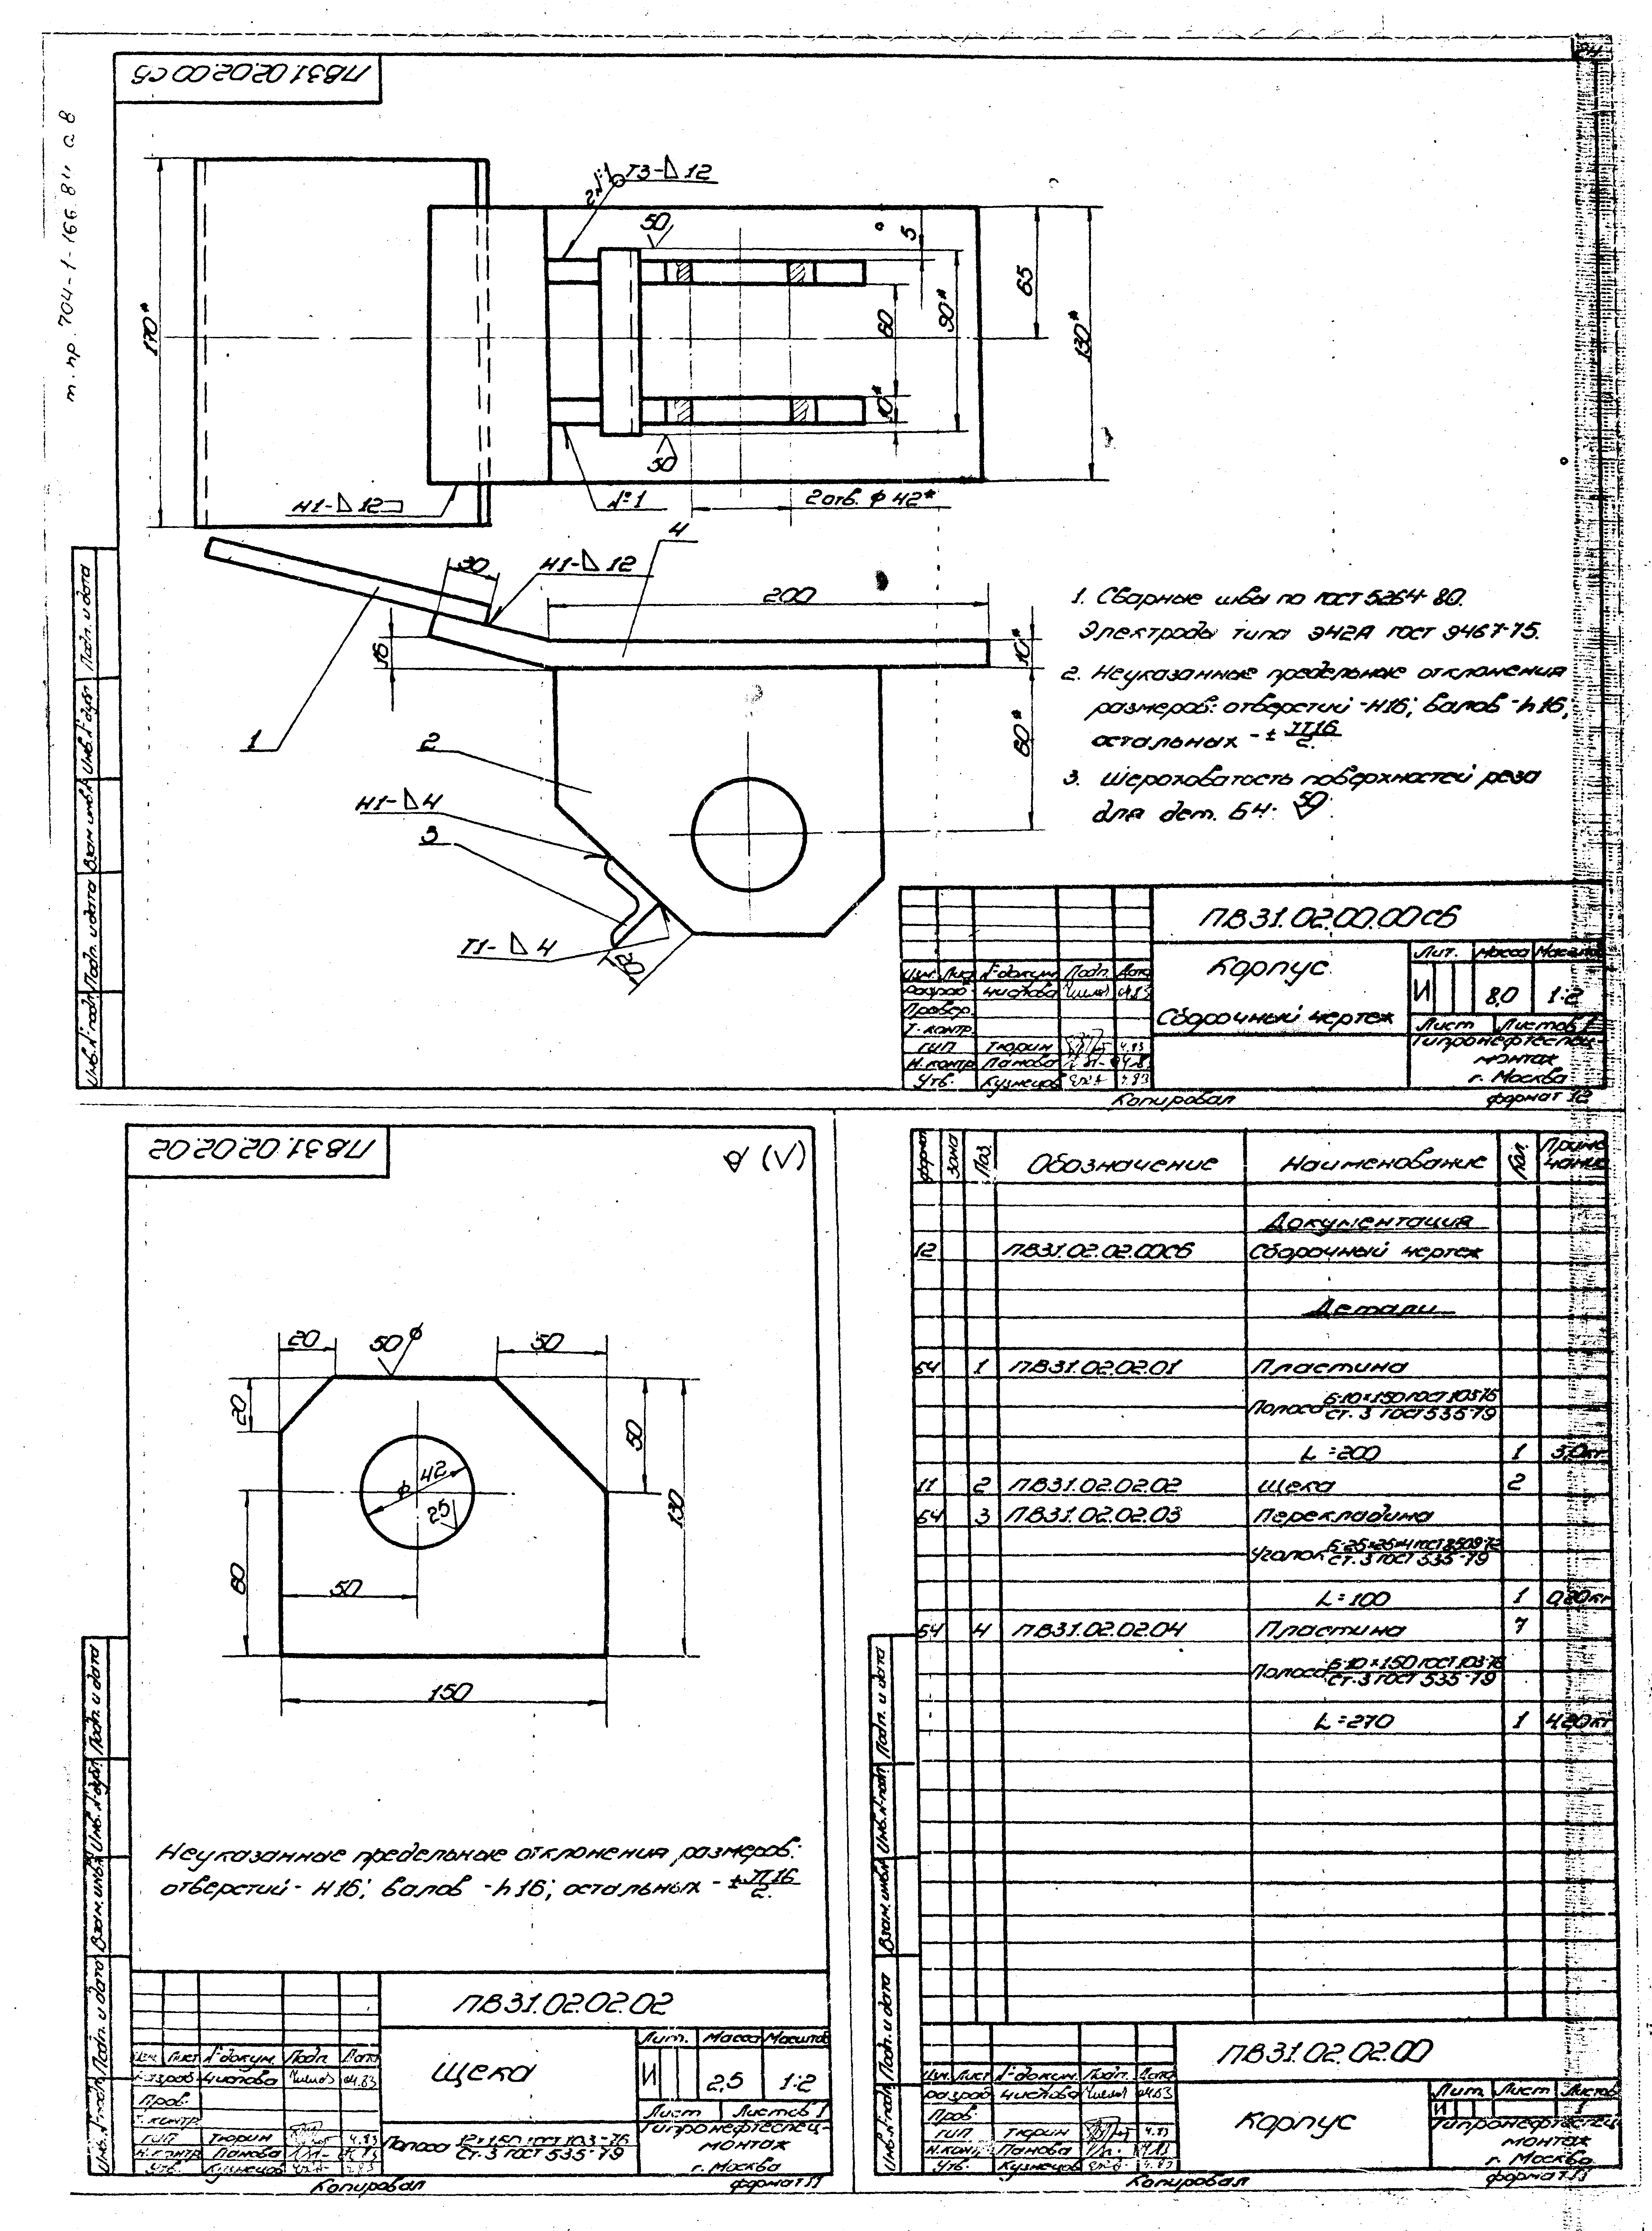 24
ПВ31.02.02.00 СБ
т. пр. 704-1-166.8
170*
2 №1 Т3-△12
50
5
65
60
90*
130*
10*
50
Н1-△12
№1
2 отв. ф 42*
4
30
Н1-△12
200
16
10*
1
2
60*
Н1-△4
3
Т1-△4
20
1. Сварные швы по ГОСТ 5264-80.
Электроды типа Э42А ГОСТ 9467-75.
2. Неуказанные предельные отклонения
размеров: отверстий -Н16; валов -h16;
остальных -± IT16/2.
3. Шероховатость поверхностей реза
для дет. БЧ: 50
ПВ31.02.00.00СБ
Корпус.
Сборочный чертеж
Лит. Масса Масштаб
И 8,0 1:2
Лист Листов 1
Гипронефтеспец-
монтаж
г. Москва
Изм. Лист № докум. Подп. Дата
Разраб. Чистова 04.83
Провер.
Т. контр.
ГИП Тюрин 4.83
Н. контр. Панова
Утв. Кузнецов 4.83
Копировал
формат 12
Инв. № подл. Подп. и дата Взам. инв. № Инв. № дубл. Подп. и дата
ПВ31.02.02.02
(√)
20
50
50
20
50
130
ф 42
25
80
50
150
Неуказанные предельные отклонения размеров:
отверстий - Н16; валов -h16; остальных -± IT16/2.
ПВ31.02.02.02
Щека
Лит. Масса Масштаб
И 2,5 1:2
Лист Листов 1
Полоса 12×150 ГОСТ 103-76
Ст. 3 ГОСТ 535-79
Гипронефтеспец-
монтаж
г. Москва
Изм. Лист № докум. Подп. Дата
Разраб. Чистова 04.83
Пров.
Т. контр.
ГИП Тюрин 4.83
Н. контр. Панова
Утв. Кузнецов 4.83
Копировал
формат 11
Инв. № подл. Подп. и дата Взам. инв. № Инв. № дубл. Подп. и дата
Формат Зона Поз. Обозначение Наименование Кол. Примечание
Документация
12 ПВ31.02.02.00СБ Сборочный чертеж
Детали
БЧ 1 ПВ31.02.02.01 Пластина
Полоса Б-10×150 ГОСТ 103-76
Ст. 3 ГОСТ 535-79
L=200 1 3,0кг
11 2 ПВ31.02.02.02 Щека 2
БЧ 3 ПВ31.02.02.03 Перекладина
Уголок Б-25×25×4 ГОСТ 8509-72
Ст. 3 ГОСТ 535-79
L=100 1 0,20кг
БЧ 4 ПВ31.02.02.04 Пластина 7
Полоса Б-10×150 ГОСТ 103-76
Ст. 3 ГОСТ 535-79
L=270 1 4,20кг
ПВ31.02.02.00
Корпус
Лит. Лист Листов
И 1
Гипронефтеспец-
монтаж
г. Москва
Изм. Лист № докум. Подп. Дата
Разраб. Чистова 04.83
Пров.
ГИП Тюрин 4.83
Н. конт. Панова 4.83
Утв. Кузнецов 4.83
Копировал
формат 11
Инв. № подл. Подп. и дата Взам. инв. № Инв. № подл. Подп. и дата